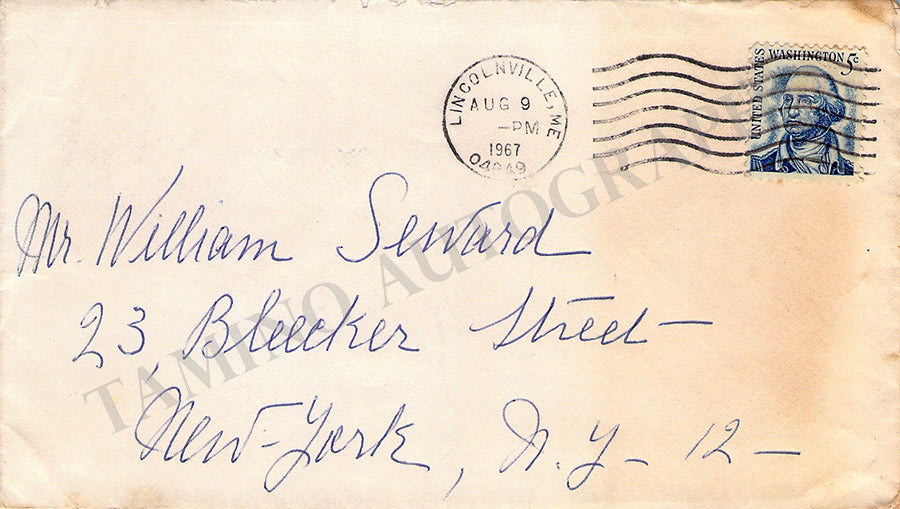 LINCOLNVILLE, ME
AUG 9
—PM
1967
04849
UNITED STATES
WASHINGTON 5c
Mr. William Seward
23, Bleecker Street —
New-York, N.Y — 12 —
TAMINO AUTOGRAPHS